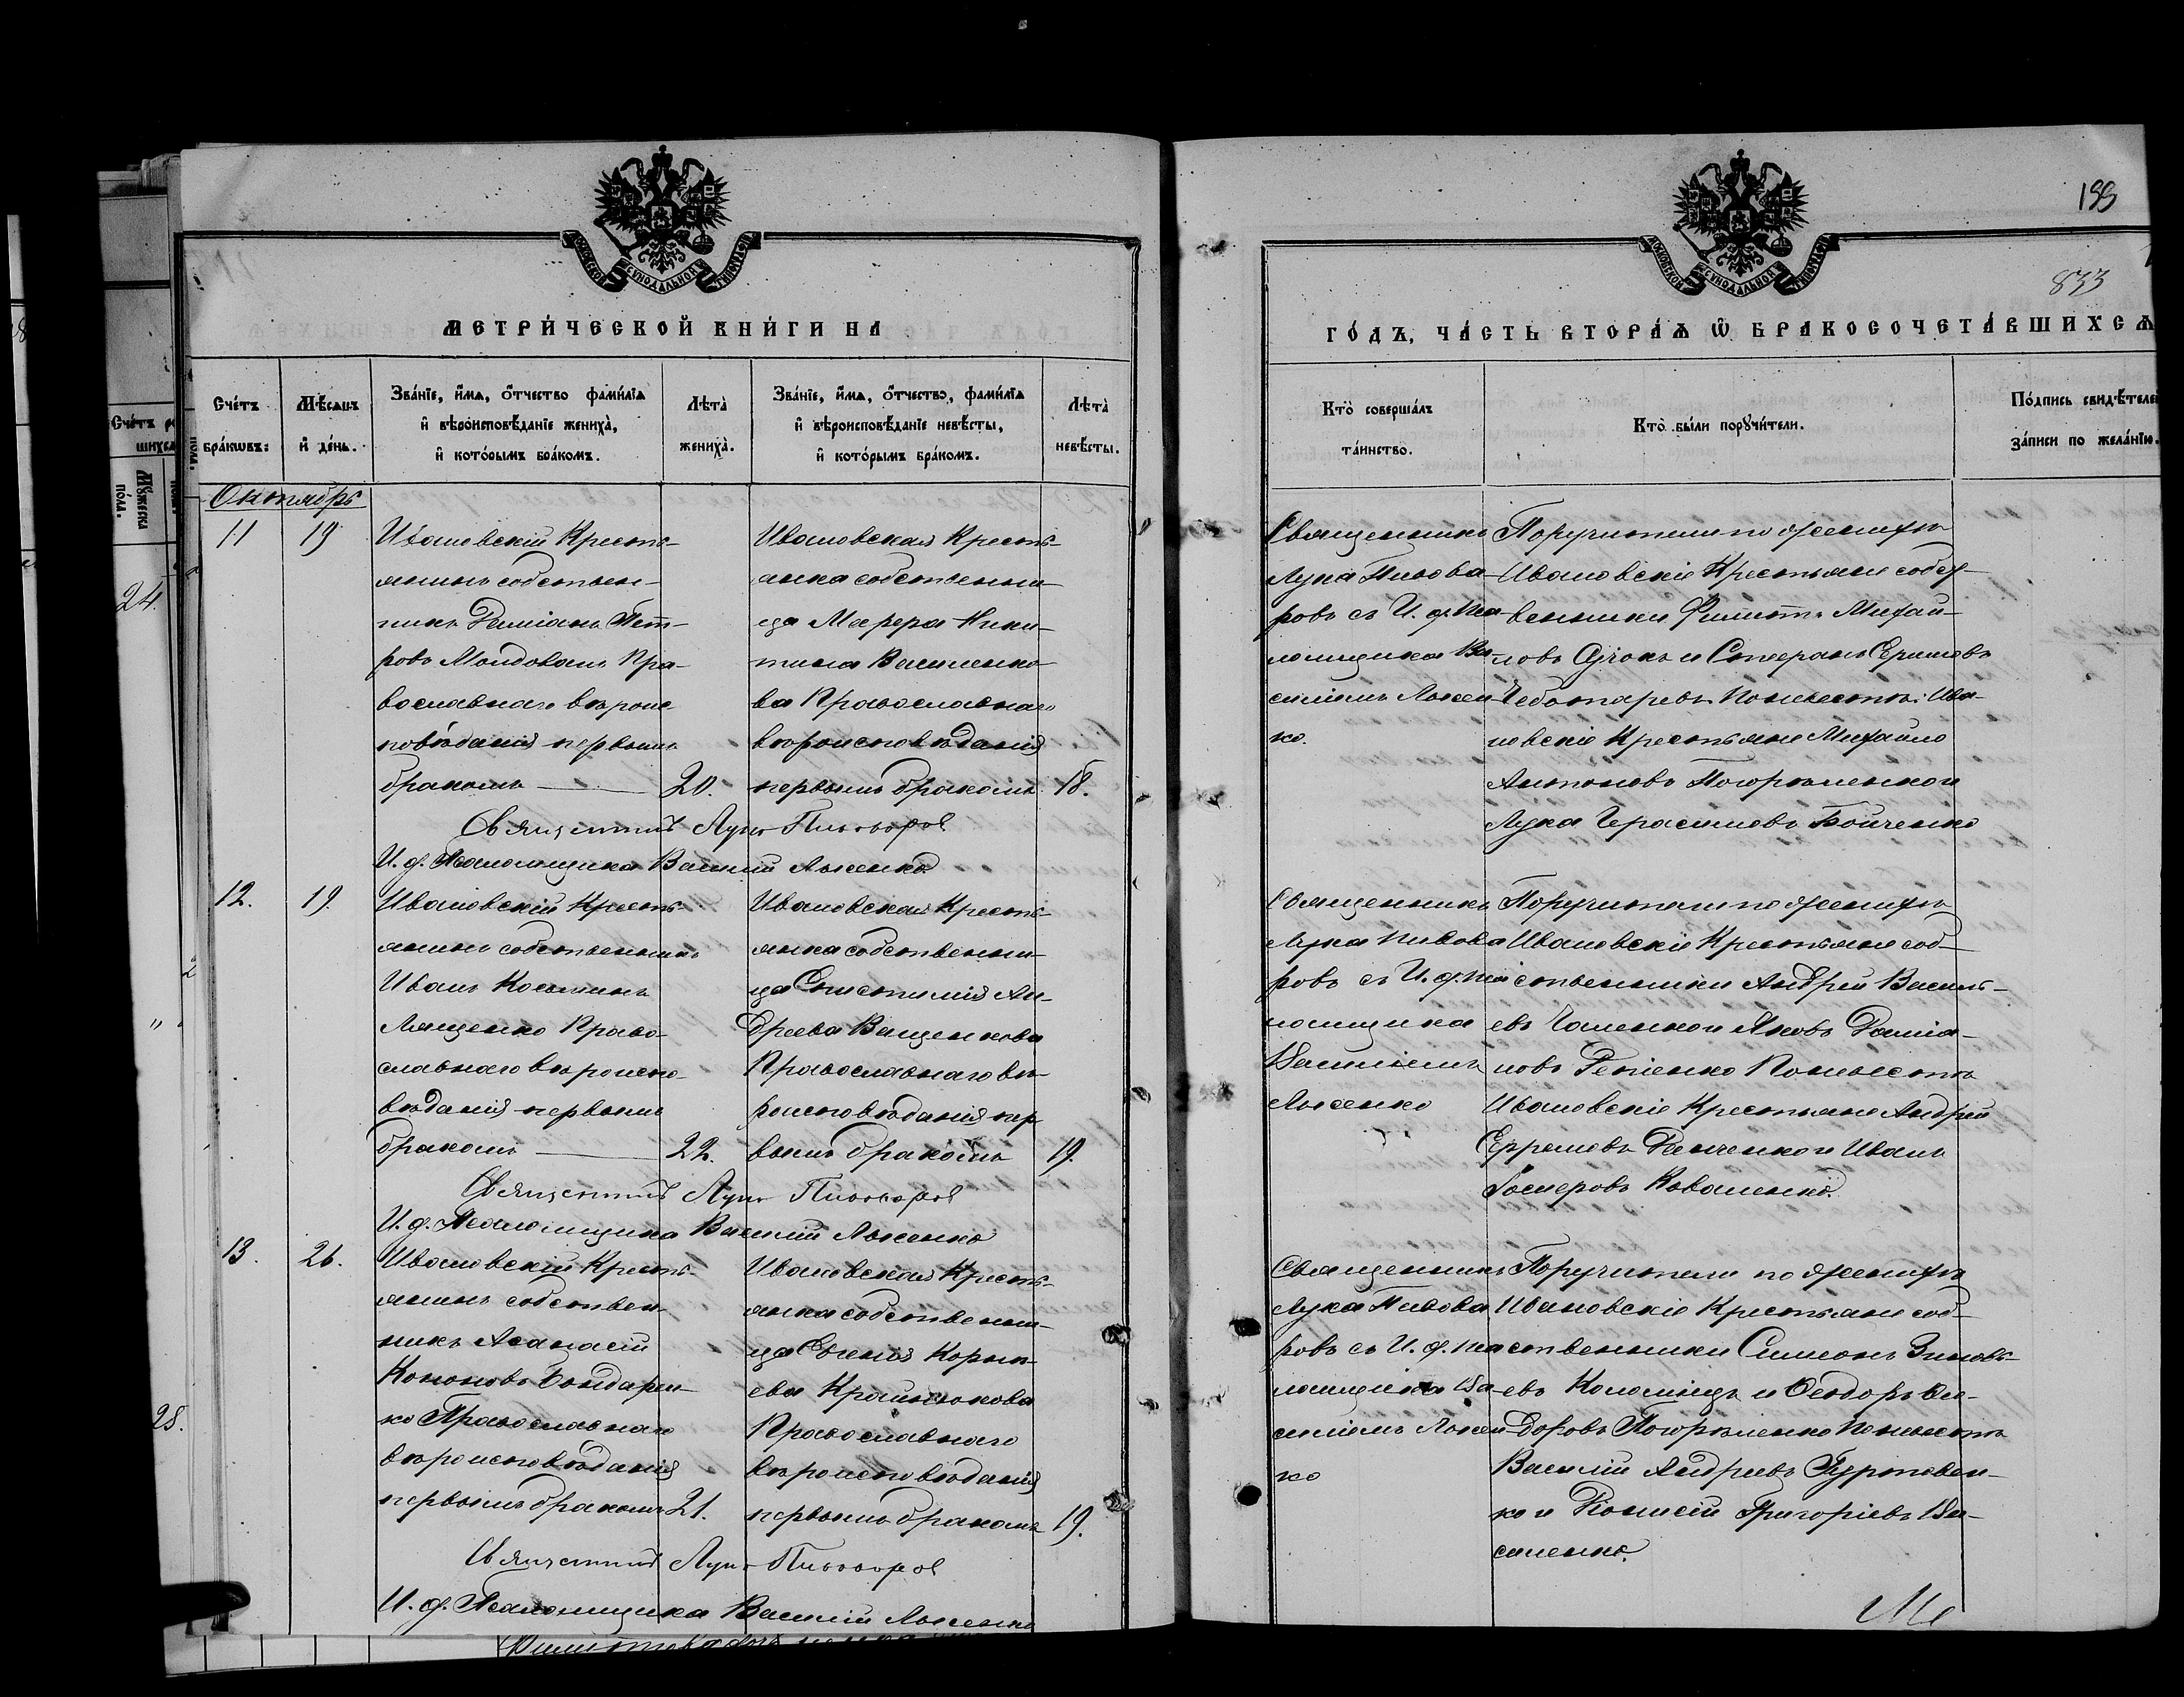 МОСКОВСКОЙ СУНОДАЛЬНОЙ ТИПОГРАФІИ
МЕТРИЧЕСКОЙ КНИГИ НА
Счетъ браковъ:
Мѣсяцъ и день.
Званіе, имя, отчество фамилія
и вѣроисповѣданіе жениха,
и которымъ бракомъ.
Лѣта
жениха.
Званіе, имя, отчество, фамилія
и вѣроисповѣданіе невѣсты,
и которымъ бракомъ.
Лѣта
невѣсты.
Октябрь
11
19
Ивановскій Кресть-
янинъ собствен-
никъ Даміанъ Пет-
ровъ Молдованъ Пра-
вославнаго вѣроис
повѣданія первымъ
бракомъ
20.
Ивановская Кресть-
янка собственни-
ца Марѳа Ники-
тина Василенко-
ва Православнаго
вѣроисповѣданія
первымъ бракомъ
18.
Священникъ Лука Пивоваровъ
И. д. Псаломщика Василій Лысенко
12.
19.
Ивановскій Кресть-
янинъ собственникъ
Иванъ Косминъ
Лященко Право-
славнаго вѣроиспо-
вѣданія первымъ
бракомъ
22.
Ивановская Кресть-
янка собственни-
ца Епистимія Ан-
дреева Ващенкова
Православнаго вѣ-
роисповѣданія пер
вымъ бракомъ
19.
Священникъ Лука Пивоваровъ
И. д. Псаломщика Василій Лысенко
13.
26.
Ивановскій Кресть-
янинъ собствен-
никъ Аѳанасій
Кононовъ Бондарен-
ко Православнаго
вѣроисповѣданія
первымъ бракомъ
21.
Ивановская Кресть-
янка собственни-
ца Евгенія Корни-
ева Крайнюкова
Православнаго
вѣроисповѣданія
первымъ бракомъ
19.
Священникъ Лука Пивоваровъ
И. д. Псаломщика Василій Лысенко
МОСКОВСКОЙ СУНОДАЛЬНОЙ ТИПОГРАФІИ
833
ГОДЪ, ЧАСТЬ ВТОРАЯ Ѿ БРАКОСОЧЕТАВШИХСЯ
Кто совершалъ
таинство.
Кто были поручители.
Подпись свидѣтелей
записи по желанію.
Священникъ
Лука Пивова-
ровъ съ И. д. Пса
ломщика Ва-
силіемъ Лысен
ко.
Поручители по женихѣ
Ивановскіе Крестьяне собст
венники Филиппъ Михай-
ловъ и Стефанъ
Чеботаревъ По невѣстѣ: Ива-
новскіе Крестьяне Михаило
Антоновъ Погорѣленко и
Лука Герасимовъ Бойченко
Священникъ
Лука Пивова
ровъ съ И. д. Пса
ломщика
Василіемъ
Лысенко
Поручители по женихѣ
Ивановскіе Крестьяне соб-
ственники Андрей Василь-
евъ и Яковъ Даміа-
новъ По невѣстѣ
Ивановскіе Крестьяне Андрей
Ефремовъ и Иванъ
Коваленко.
Священникъ
Лука Пивова
ровъ съ И. д. Пса
ломщика Ва-
силіемъ Лысен
ко
Поручители по женихѣ
Ивановскіе Крестьяне соб-
ственники Симеонъ Зиновь-
евъ Коломіецъ и Ѳеодоръ Ѳе-
доровъ Погорѣленко По невѣстѣ
Василій Андреевъ
ко и Діонисій Григоріевъ Ва-
силенко.
24.
28.